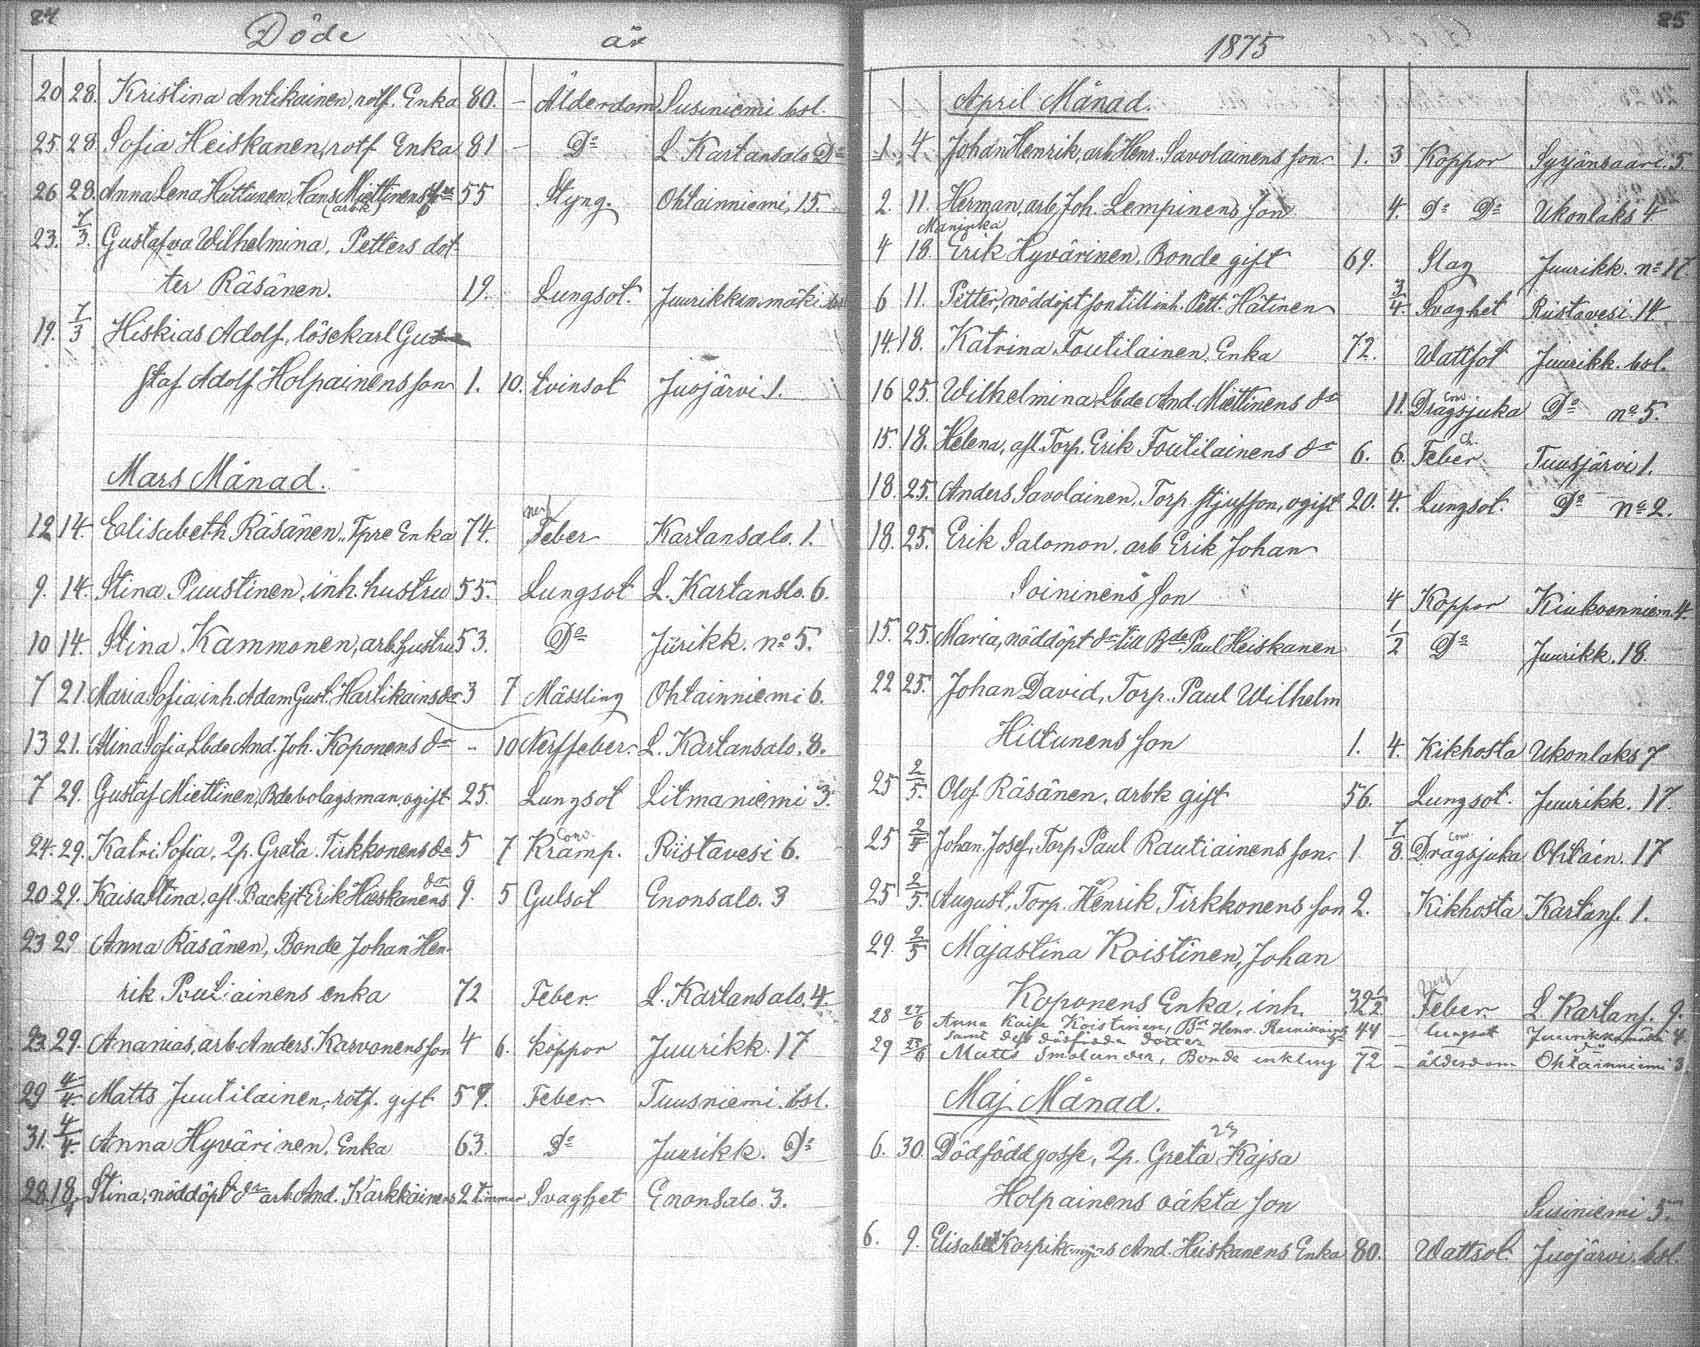 84
Döde år
20 28. Kristina Antikainen, rotf. Enka 80. - Ålderdom Susiniemi bsl.
25. 28 Sofia Heiskanen, rotf Enka 81 - Do L. Kartansalo Do
26 28. Anna Lena Hattunen, Hans Miettinens 55 Styng. Ohtainniemi, 15.
(arbk)
23. 7/3. Gustafva Wilhelmina, Petters dot
ter Räsänen. 19. Lungsot. Juurikkamäki bsl
19. 7/3 Hiskias Adolf, lösekarl Gu
staf Adolf Holpainens son 1. 10. Tvinsot Juojärvi 1.
Mars Månad.
nerf
12 14. Elisabeth Räsänen, Tpre Enka 74. Feber Kartansalo. 1.
9. 14. Stina Puustinen, inh. hustru 55. Lungsot L. Kartanslo. 6.
10 14. Stina Kammonen, arb. hustru 53. Do Jurikk. no 5.
7 21 Maria Sofia, inh. Adam Gust. Hartikains dr 3 7 Mässling Ohtainniemi 6.
13 21. Alina Sofia, Lbde And. Joh. Koponens dr - 10 Nerffeber. L. Kartansalo. 8.
7 29. Gustaf Miettinen, Bdebolagsman, ogift 25. Lungsot Litmaniemi 3.
Conv.
24. 29. Katri Sofia, 2p. Greta Tirkkonens dr 5 7 Kramp. Ristavesi 6.
20 29. Kaisa Stina, afl. Backst Erik Hieskanens dr 9. 5 Gulsot Enonsalo. 3
23 29 Anna Räsänen, Bonde Johan Hen
rik Poutiainens enka 72 Feber L. Kartansalo. 4.
23. 29. Ananias, arb Anders Karvonens son 4 6. koppor Juurikk. 17
29 4/4. Matts Juutilainen, rotf. gift 59. Feber Tuusniemi. bsl.
31. 4/4. Anna Hyvärinen, Enka 63. Do Juurikk. Do
28. 18/4 Stina, nöddöpt dr arb And. Kärkkäinens 2 timmar Svaghet Enonsalo. 3.
85
1875
April Månad.
1. 4 Johan Henrik, arb. Henr. Savolainens son 1. 3 Koppor Syrjänsaari. 5
2. 11. Herman, arb Joh. Lempinens son 4. Do Do Ukonlaks 4
Maninka
4 18. Erik Hyvärinen, Bonde gift 69. Slag Juurikk. no 17
6 11. Petter, nöddöpt son till inh. Pett. Hätinen 3/4. Svaghet Ristavesi. 14
14. 18. Katrina Toutilainen, Enka 72. Wattsot Juurikk. bsl.
16 25. Wilhelmina, Lbde And. Miettinens dr 11. Dragsjuka Do no 5.
15. 18. Helena, afl. Torp. Erik Toutilainens dr 6. 6. Feber Tuusjärvi 1.
18. 25. Anders Savolainen, Torp styfson, ogift 20. 4. Lungsot. Do no 2.
18. 25. Erik Salomon, arb Erik Johan
Soininens son 4 Koppor Kiukoonniem. 4.
15. 25. Maria, nöddöpt dr till Bde Paul Heiskanen 1/2 Do Juurikk. 18.
22 25. Johan David, Torp. Paul Wilhelm
Hiltunens son 1. 4. Kikhosta Ukonlaks 7
25 2/5. Olof Räsänen, arbk gift 56. Lungsot. Juurikk. 17.
25 2/5 Johan Josef, Torp Paul Rautiainens son 1 7/8. Dragsjuka Ohtain. 17
25 2/5. August, Torp. Henrik Tirkkonens son 2. Kikhosta Kartans. 1.
29. 2/5 Majastina Roistinen, Johan
Koponens Enka, inh. 39 1/2 Feber L. Kartans. 9.
28 27/6 Anna Kaisa Koistinen, Bde Henr. 44 - lungsot Juurikkamäki 4
samt dess dödfödda dotter
29 23/6 Matts Smolander, Bonde enkling 72 - ålderdom Ohtainniemi 3.
Maj Månad.
6. 30. Dödfödd gosse, 2p. Greta Kajsa
Holpainens oäkta son Susiniemi 5.
6. 9. Elisabet Korpikangas And. Hiskanens Enka 80. Wattsot. Juojärvi. bsl.